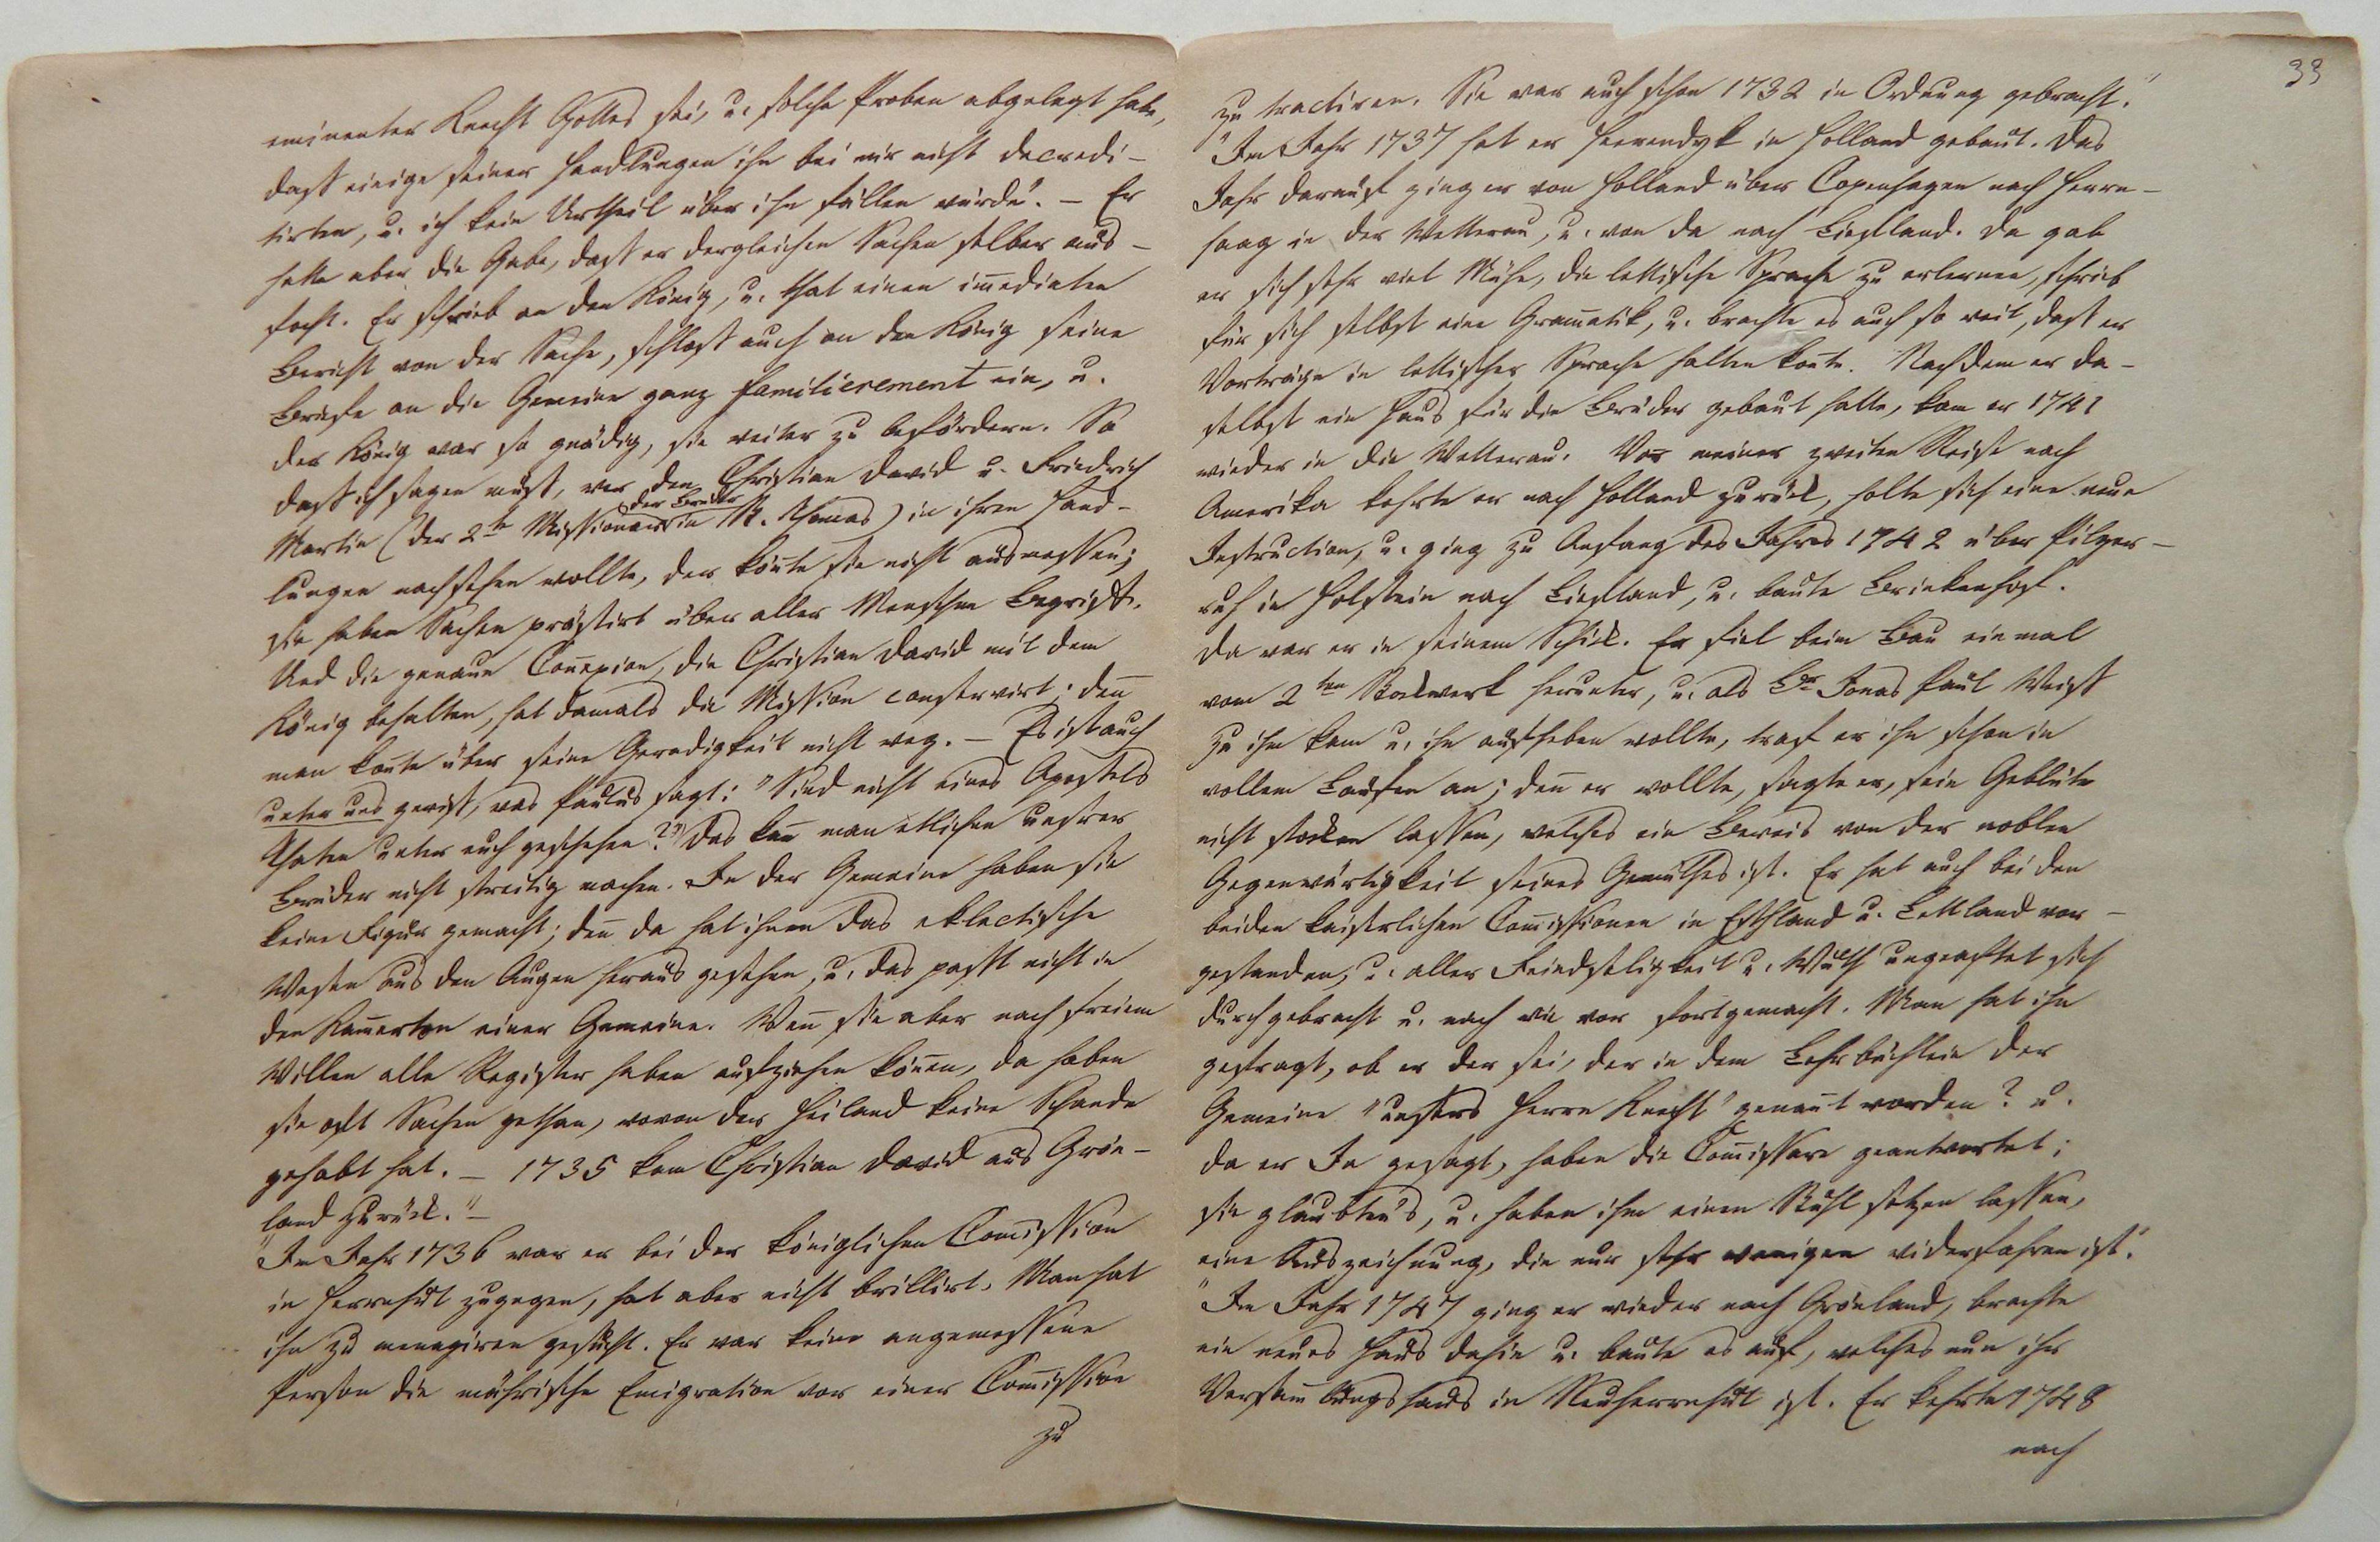 eminenter Knecht Gottes sei, u. solche Proben abgelegt habe,
dass einige seiner Handlungen ihn bei mir nicht decredi-
tirten, u. ich kein Urtheil über ihn fällen würde". – Er
hatte aber die Gabe, dass er dergleichen Sachen selber aus-
focht. Er schrieb an den König, u. that einen im̄ediaten
Bericht von der Sache, schloss auch an den König seine
Briefe an die Gemeine ganz familièrement ein, u.
der König war so gnädig, sie weiter zu befördern. So
dass ich sagen muss, wer den Christian David u. Friedrich
der Brüder
Martin (der 2te Missionar in St. Thomas) in ihren Hand-
lungen nachsehen wollte, der kön̄te sie nicht ausmessen;
sie haben Sachen prästirt über aller Menschen Begriff.
Und die genaue Con̄exion, die Christian David mit dem
König behalten, hat damals die Mission conservirt; den̄
man kon̄te über seine Geradigkeit nicht weg. – Es ist auch
unter uns gewiss, was Paulus sagt: "Sind nicht eines Apostels
Thaten unter euch geschehen?" Das kan̄ man etlichen unsrer
Brüder nicht streitig machen. In der Gemeine haben sie
keine Figur gemacht; den̄ da hat ihnen das eklectische
Wesen aus den Augen heraus gesehen, u. das passt nicht in
den Kam̄erton einer Gemeine. Wen̄ sie aber nach freiem
Willen alle Register haben aufziehen kön̄en, da haben
sie oft Sachen gethan, wovon der Heiland keine Schande
gehabt hat. – 1735 kam Christian David aus Grön-
land zurück." –
"Im Jahr 1736 war er bei der königlichen Com̄ission
in Herrnhut zugegen, hat aber nicht brillirt. Man hat
ihn zu menagiren gesucht. Er war keine angemessene
Person die mährische Emigration vor einer Com̄ission
zu
33
zu tractiren. Sie war auch schon 1732 in Ordnung gebracht."
"Im Jahr 1737 hat er Heerendyk in Holland gebaut. Das
Jahr darauf ging er von Holland über Copenhagen nach Herrn-
haag in der Wetterau, u. von da nach Liefland. Da gab
er sich sehr viel Mühe, die lettische Sprache zu erlernen, schrieb
für sich selbst eine Gram̄atik, u. brachte es auch so weit, dass er
Vorträge in lettischer Sprache halten kon̄te. Nachdem er da-
selbst ein Haus für die Brüder gebaut hatte, kam er 1741
wieder in die Wetterau. Vor meiner zweiten Reise nach
Amerika kehrte er nach Holland zurück, holte sich eine neue
Instruction, u. ging zu Anfang des Jahres 1742 über Pilger-
ruh in Holstein nach Liefland, u. baute Brinkenhof.
Da war er in seinem Schick. Er fiel beim Bau einmal
vom 2ten Stockwerk herunter, u. als Br. Jonas Paul Weiss
zu ihm kam u. ihn aufheben wollte, traf er ihn schon in
vollem Laufen an; den̄ er wollte, sagte er, sein Geblüte
nicht stocken lassen, welches ein Beweis von der noblen
Gegenwärtigkeit seines Gemüthes ist. Er hat auch bei den
beiden kaiserlichen Com̄issionen in Esthland u. Lettland vor-
gestanden, u. aller Feindseligkeit u. Wuth ungeachtet sich
durchgebracht u. nach wie vor fortgemacht. Man hat ihn
gefragt, ob er der sei, der in dem Lehrbüchlein der
Gemeine "unsers Herrn Knecht" genan̄t worden? u.
da er Ja gesagt, haben die Com̄issare geantwortet;
sie glaubten's, u. haben ihm einen Stuhl setzen lassen,
eine Auszeichnung, die nur sehr wenigen widerfahren ist."
"Im Jahr 1747 ging er wieder nach Grönland, brachte
ein neues Haus dahin u. baute es auf, welches nun ihr
Versam̄lungshaus in Neuherrnhut ist. Er kehrte 1748
nach